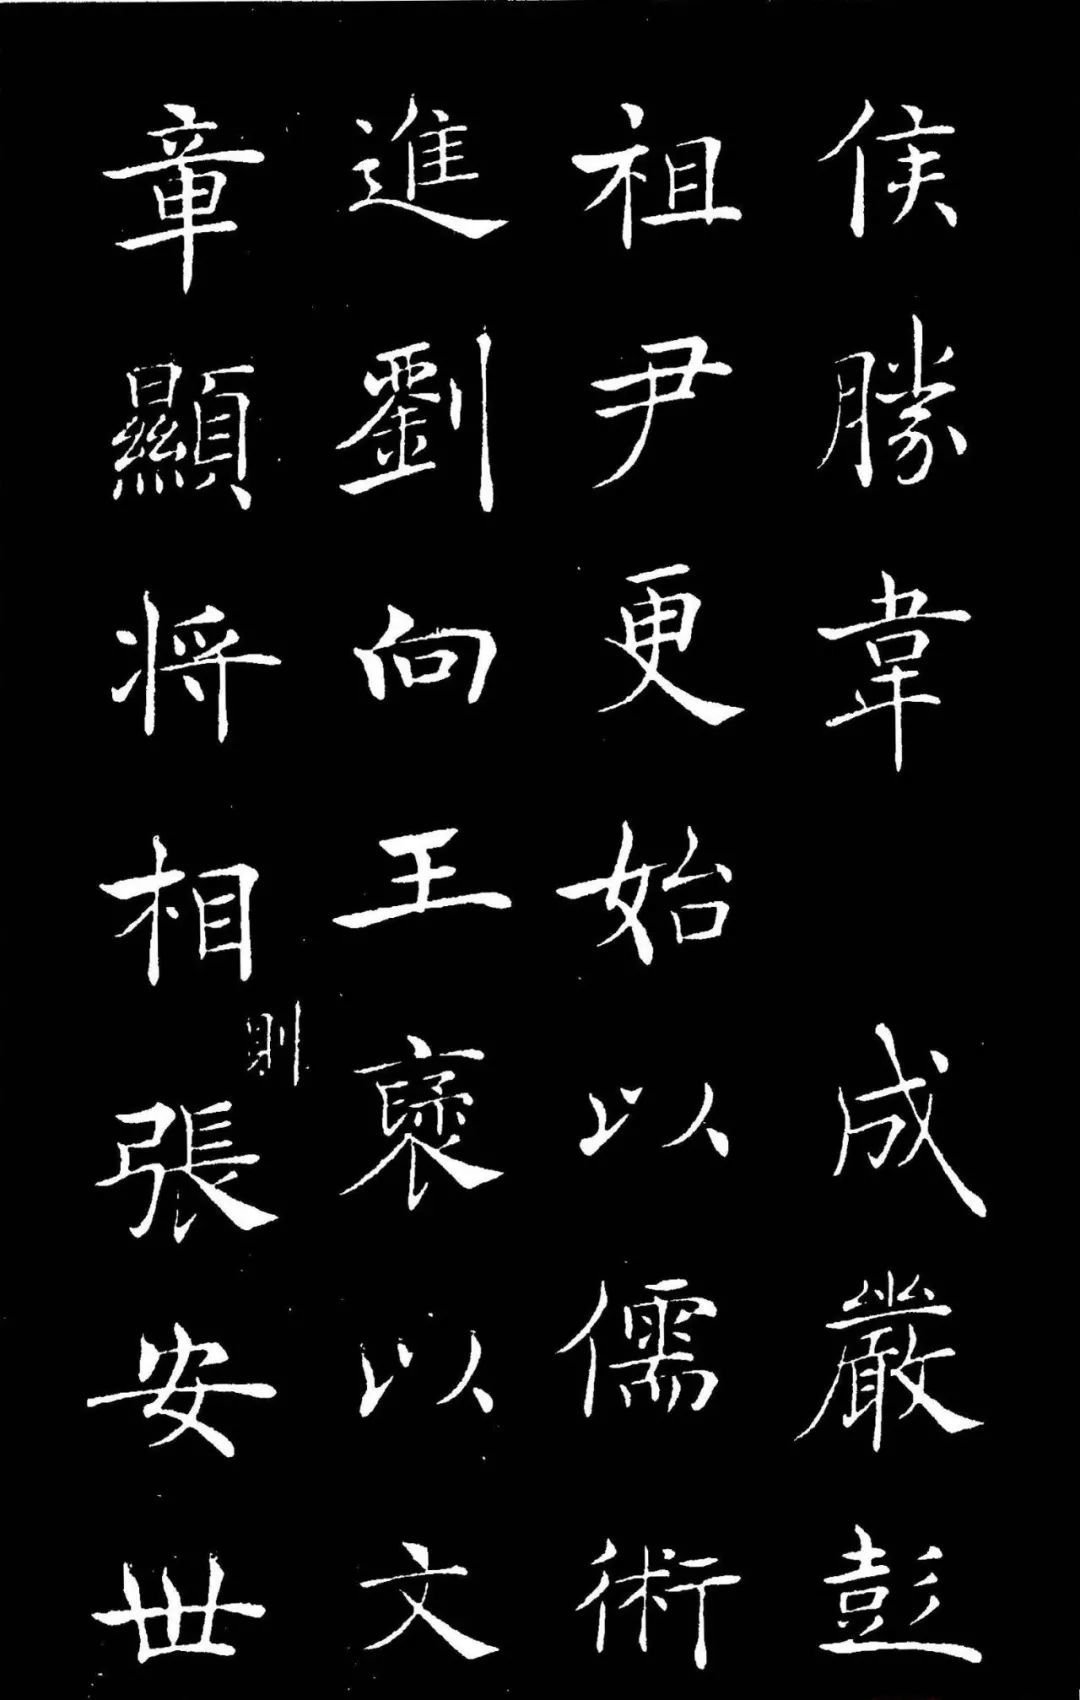 侯勝韋 成嚴彭
祖尹更始以儒術
進劉向王褒以文
章顯將相則張安世